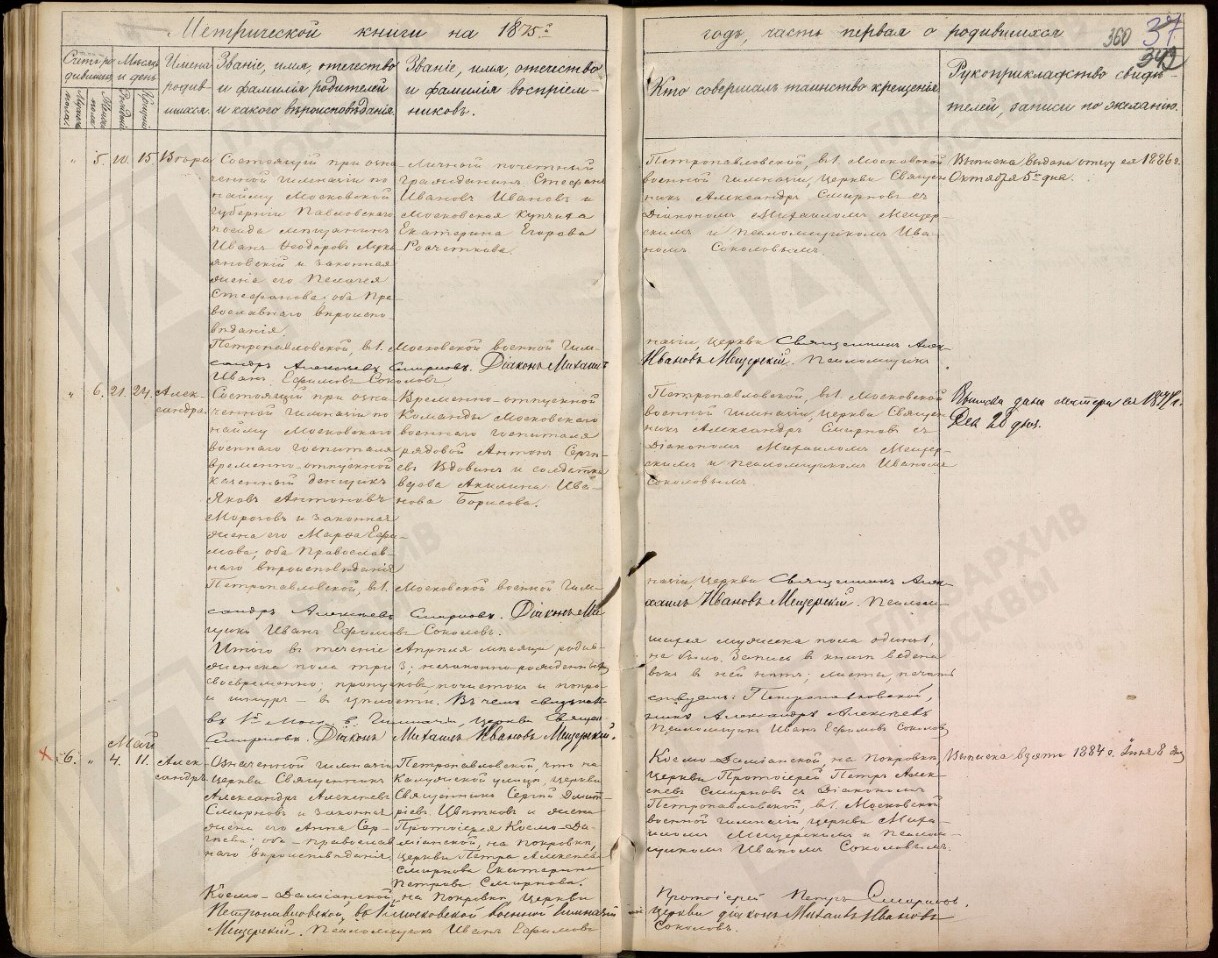 Метрической книги на 1875й
годъ, часть первая о родившихся
360
37
342
Счетъ родившихся
Мѣсяцъ и день
Имена родившихся.
Званіе, имя, отечество
и фамилія родителей
и какого вѣроисповѣданія.
Званіе, имя, отечество
и фамилія воспріем-
никовъ.
Кто совершалъ таинство крещенія
Рукоприкладство свидѣ-
телей, записи по желанію.
" 5. 10. 15.
Состоящій при озна-
ченной гимназіи по
найму Московской
губерніи Павловскаго
посада мѣщанинъ
Иванъ Ѳеодоровъ Лукь-
яновскій и законная
жена его Пелагея
Стефанова; оба Пра-
вославнаго вѣроиспо-
вѣданія.
Личный почетный
гражданинъ Стефанъ
Ивановъ Ивановъ и
Московская купчиха
Екатерина Егорова
Петропавловской, в 1. Московской
военной гимназіи, церкви Священ-
никъ Александръ Смирновъ съ
Діакономъ Михаиломъ Мещер-
скимъ и псаломщикомъ Ива-
номъ Соколовымъ.
Выписка выдана отцу ея 1886 г.
Октября 5го дня.
Петропавловской, в 1. Московской военной гим-
назіи, церкви Священникъ Алек-
сандръ Алексѣевъ Смирновъ. Діаконъ Михаилъ
Ивановъ Мещерскій. Псаломщикъ
Иванъ Ефимовъ Соколовъ
" 6. 21. 24. Алек-
сандра
Состоящій при озна-
ченной гимназіи по
найму Московскаго
военнаго госпиталя
временно-отпускной
казенный денщикъ
Яковъ Антоновъ
Морозовъ и законная
жена его Марѳа Ефи-
мова; оба Православ-
наго вѣроисповѣданія
Временно-отпускной
Команды Московскаго
военнаго госпиталя
рядовой Антонъ Сергѣ-
евъ Вдовинъ и солдатка
вдова Акилина Ива-
нова Борисова.
Петропавловской, в 1. Московской
военной гимназіи, церкви Священ-
никъ Александръ Смирновъ съ
Діакономъ Михаиломъ Мещер-
скимъ и псаломщикомъ Иваномъ
Соколовымъ
Выписка дана матери ея
Дек 22 дня.
Петропавловской, в 1. Московской военной гим-
назіи, церкви Священникъ Алек-
сандръ Алексѣевъ Смирновъ. Діаконъ Ми-
хаилъ Ивановъ Мещерскій. Псалом-
щикъ Иванъ Ефимовъ Соколовъ.
Итого въ теченіе Апрѣля мѣсяца родив-
шихся мужеска пола одинъ 1,
женска пола три 3; незаконно-рожденныхъ
не было. Запись в книгѣ ведена
своевременно; пропусковъ, почистокъ и попра-
вокъ в ней нѣтъ; листы, печать
и шнуръ – в цѣлости. Въ чемъ свидѣтель-
ствуемъ: Петропавловской,
въ 1й Моск. в. Гимназіи, церкви Священ-
никъ Александръ Алексѣевъ
Смирновъ. Діаконъ Михаилъ Ивановъ Мещерскій.
Псаломщикъ Иванъ Ефимовъ Соколовъ
Май
6. " 4. 11. Алек-
сандръ
Означенной гимназіи
церкви Священникъ
Александръ Алексѣевъ
Смирновъ и законная
жена его Анна Сер-
гѣева; оба православ-
наго вѣроисповѣданія
Петропавловской, что на
Калужской улицѣ, церкви
Священникъ Сергій Дмит-
ріевъ Цвѣтковъ и жена
Протоіерея Космо-Да-
міанской, на Покровкѣ,
церкви Петра Алексѣева
Смирнова Екатерина
Петрова Смирнова.
Космо-Даміанской, на Покровкѣ
церкви Протоіерей Петръ Алек-
сѣевъ Смирновъ съ Діакономъ
Петропавловской, в 1. Московской
военной гимназіи церкви Миха-
иломъ Мещерскимъ и псалом-
щикомъ Иваномъ Соколовымъ.
Выписка взята 1884 г. Июня 8 дня
Космо-Даміанской, на Покровкѣ, церкви
Протоіерей Петръ Смирновъ.
Петропавловской, въ 1 Московской военной гимназіи
церкви діаконъ Михаилъ Ивановъ
Мещерскій. Псаломщикъ Иванъ Ефимовъ
Соколовъ.
ГЛАВАРХИВ
МОСКВЫ